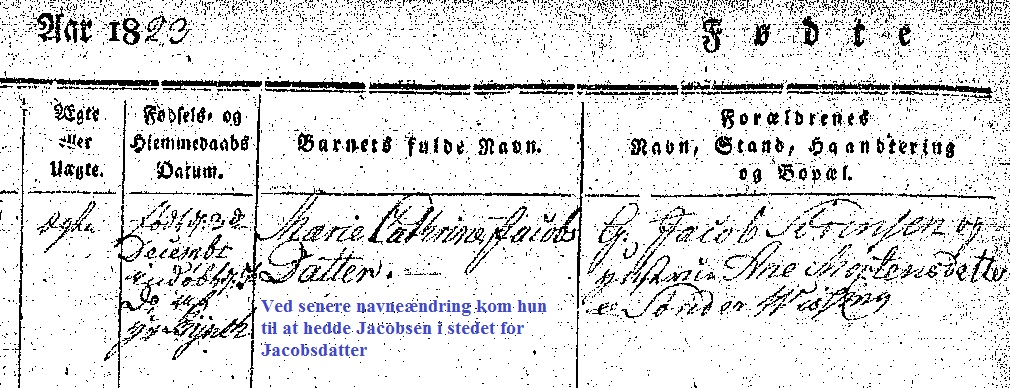 Aar 1823
Fødte
Ægte
eller
Uægte.
Fødsels- og
Hjemmedaabs
Datum.
Barnets fulde Navn.
Forældrenes
Navn, Stand, Haandtering
og Bopæl.
Ægte
født d. 3 d
Decembr
Marie Cathrine Jacobs
Datter.
G. Jacob Sørensen og
Ane Mortensdatter
Sønder
Ved senere navneændring kom hun
til at hedde Jacobsen i stedet for
Jacobsdatter